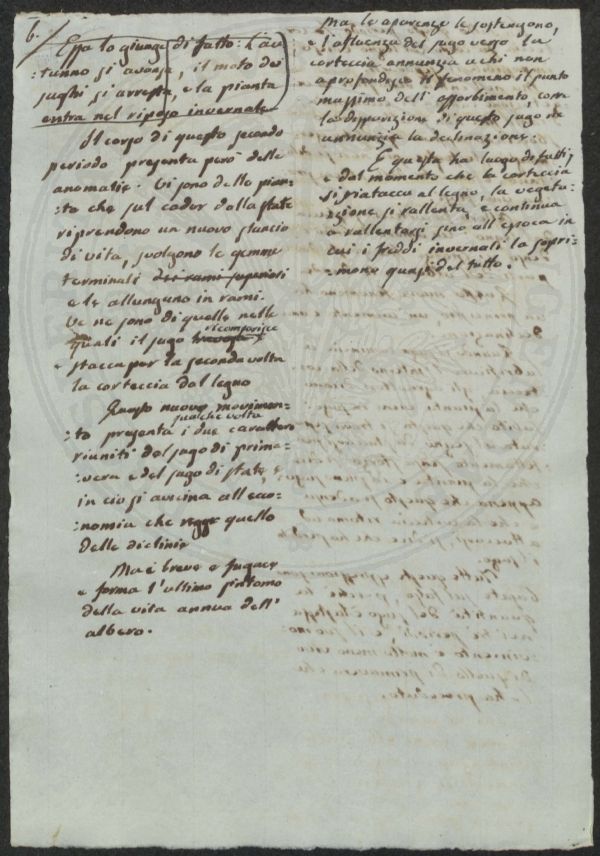 6./
Essa lo giunge di fatto: L'au-
-tunno si avanza, il moto dei
sughi si arresta, e la pianta
entra nel riposo invernale
Il corso di questo secondo
periodo presenta però delle
anomalie. Vi sono delle pian-
-te che sul cader dalla state
riprendono un nuovo slancio
di vita, svolgono le gemme
terminali dei rami superiori
e le allungano in rami.
Ve ne sono di quelle nelle
quali il sugo ricomparisce
e stacca per la seconda volta
la corteccia dal legno
Questo nuovo movimen-
-to presenta qualche volta i due caratteri
riuniti del sugo di prima-
vera e del sugo di state, e
in ciò si avicina all'eco-
-nomia che regge quello
delle diclinie
Ma è breve e fugace
e forma l'ultimo sintomo
della vita annua dell'
albero.
Ma le aparenze le sostengono,
e l'affluenza del sugo verso la
corteccia annunzia a chi non
aprofondisce il fenomeno il punto
massimo dell'assorbimento, come
la disposizione di questo sugo ne
annunzia la declinazione.
E questa ha luogo di fatti;
e dal momento che la corteccia
si riatacca al legno, la vegeta-
-zione si rallenta, e continua
a rallentarsi sino all'epoca in
cui i freddi invernali la sopri-
-mono quasi del tutto.